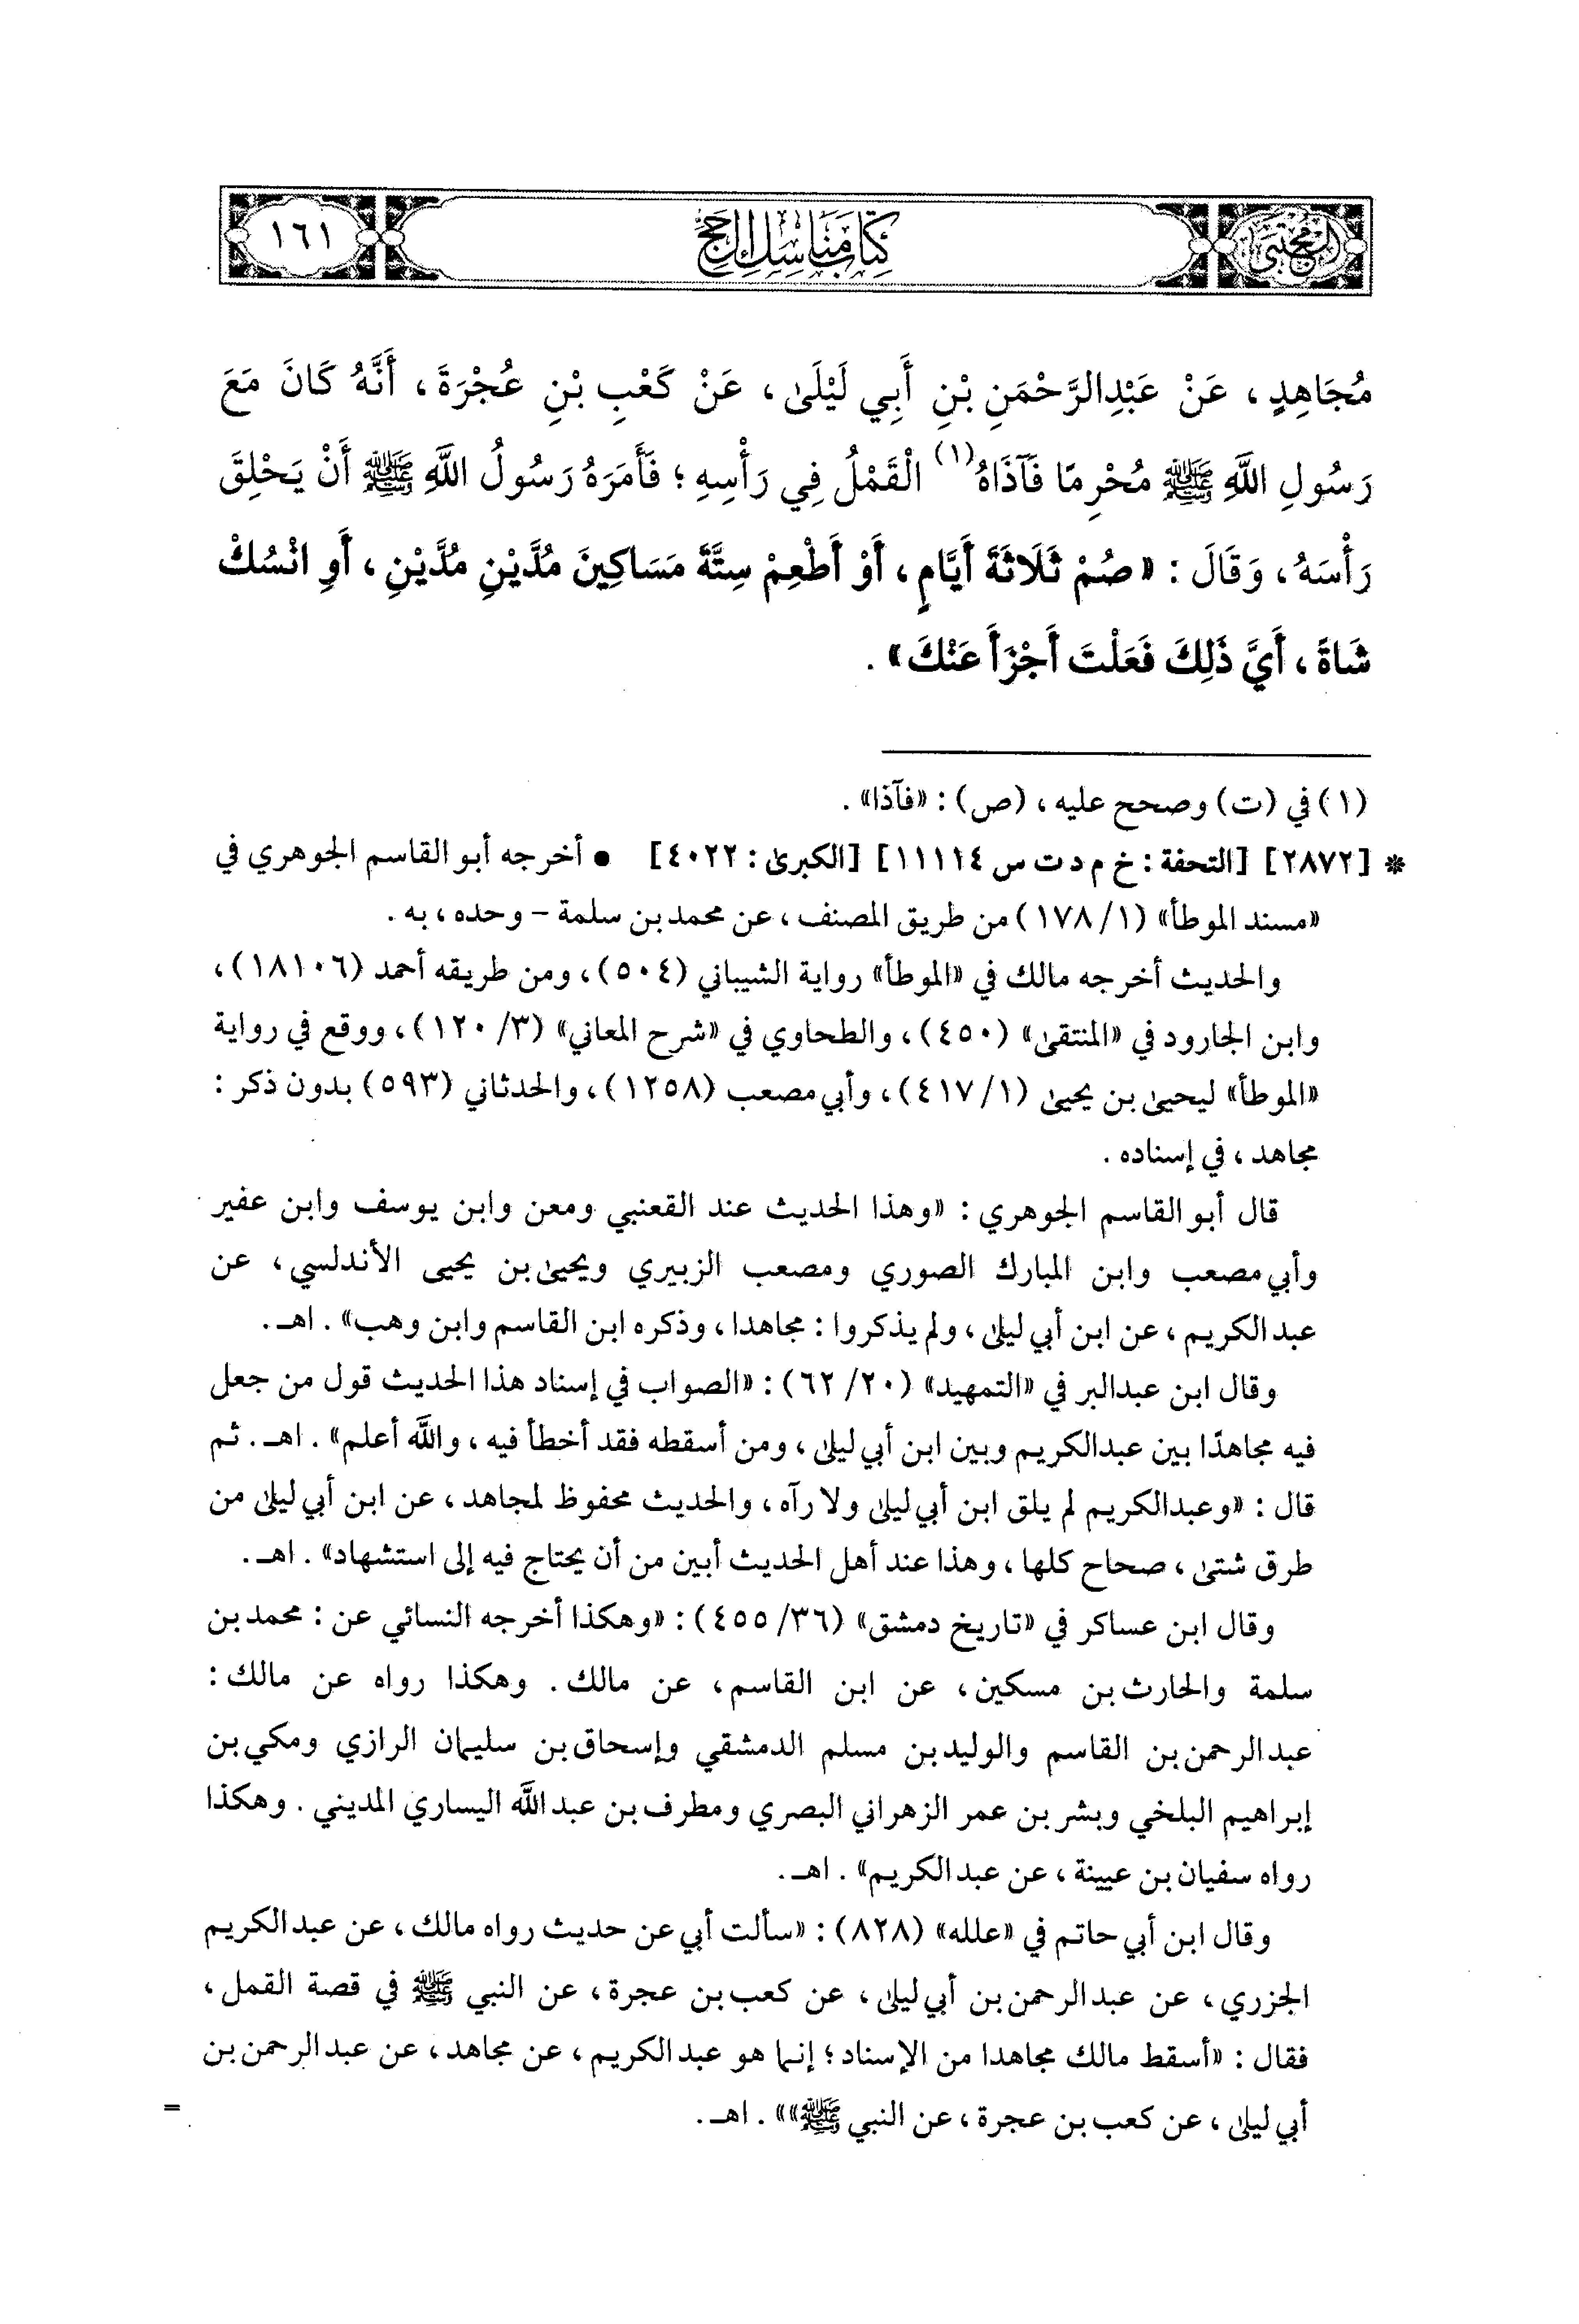 المجتبى
كتاب مناسك الحج
١٦١
مُجَاهِدٍ، عَنْ عَبْدِالرَّحْمَنِ بْنِ أَبِي لَيْلَىٰ، عَنْ كَعْبِ بْنِ عُجْرَةَ، أَنَّهُ كَانَ مَعَ
رَسُولِ اللَّهِ ﷺ مُحْرِمًا فَآذَاهُ(١) الْقَمْلُ فِي رَأْسِهِ؛ فَأَمَرَهُ رَسُولُ اللَّهِ ﷺ أَنْ يَحْلِقَ
رَأْسَهُ، وَقَالَ: «صُمْ ثَلَاثَةَ أَيَّامٍ، أَوْ أَطْعِمْ سِتَّةَ مَسَاكِينَ مُدَّيْنِ مُدَّيْنِ، أَوِ انْسُكْ
شَاةً، أَيَّ ذَلِكَ فَعَلْتَ أَجْزَأَ عَنْكَ».
(١) في (ت) وصحح عليه، (ص): «فآذا».
* [٢٨٧٢] [التحفة: خ م د ت س ١١١١٤] [الكبرىٰ: ٤٠٢٢] • أخرجه أبو القاسم الجوهري في
«مسند الموطأ» (١/ ١٧٨) من طريق المصنف، عن محمد بن سلمة - وحده، به.
والحديث أخرجه مالك في «الموطأ» رواية الشيباني (٥٠٤)، ومن طريقه أحمد (١٨١٠٦)،
وابن الجارود في «المنتقىٰ» (٤٥٠)، والطحاوي في «شرح المعاني» (٣/ ١٢٠)، ووقع في رواية
«الموطأ» ليحيىٰ بن يحيىٰ (١/ ٤١٧)، وأبي مصعب (١٢٥٨)، والحدثاني (٥٩٣) بدون ذكر:
مجاهد، في إسناده.
قال أبو القاسم الجوهري: «وهذا الحديث عند القعنبي ومعن وابن يوسف وابن عفير
وأبي مصعب وابن المبارك الصوري ومصعب الزبيري ويحيىٰ بن يحيى الأندلسي، عن
عبد الكريم، عن ابن أبي ليلىٰ، ولم يذكروا: مجاهدا، وذكره ابن القاسم وابن وهب». اهـ.
وقال ابن عبدالبر في «التمهيد» (٢٠/ ٦٢): «الصواب في إسناد هذا الحديث قول من جعل
فيه مجاهدًا بين عبدالكريم وبين ابن أبي ليلىٰ، ومن أسقطه فقد أخطأ فيه، والله أعلم». اهـ. ثم
قال: «وعبدالكريم لم يلق ابن أبي ليلىٰ ولا رآه، والحديث محفوظ لمجاهد، عن ابن أبي ليلىٰ من
طرق شتىٰ، صحاح كلها، وهذا عند أهل الحديث أبين من أن يحتاج فيه إلى استشهاد». اهـ.
وقال ابن عساكر في «تاريخ دمشق» (٣٦/ ٤٥٥): «وهكذا أخرجه النسائي عن: محمد بن
سلمة والحارث بن مسكين، عن ابن القاسم، عن مالك. وهكذا رواه عن مالك:
عبد الرحمن بن القاسم والوليد بن مسلم الدمشقي وإسحاق بن سليمان الرازي ومكي بن
إبراهيم البلخي وبشر بن عمر الزهراني البصري ومطرف بن عبد الله اليساري المديني. وهكذا
رواه سفيان بن عيينة، عن عبد الكريم». اهـ.
وقال ابن أبي حاتم في «علله» (٨٢٨): «سألت أبي عن حديث رواه مالك، عن عبد الكريم
الجزري، عن عبد الرحمن بن أبي ليلىٰ، عن كعب بن عجرة، عن النبي ﷺ في قصة القمل،
فقال: «أسقط مالك مجاهدا من الإسناد؛ إنما هو عبد الكريم، عن مجاهد، عن عبد الرحمن بن
أبي ليلىٰ، عن كعب بن عجرة، عن النبي ﷺ»». اهـ.
=